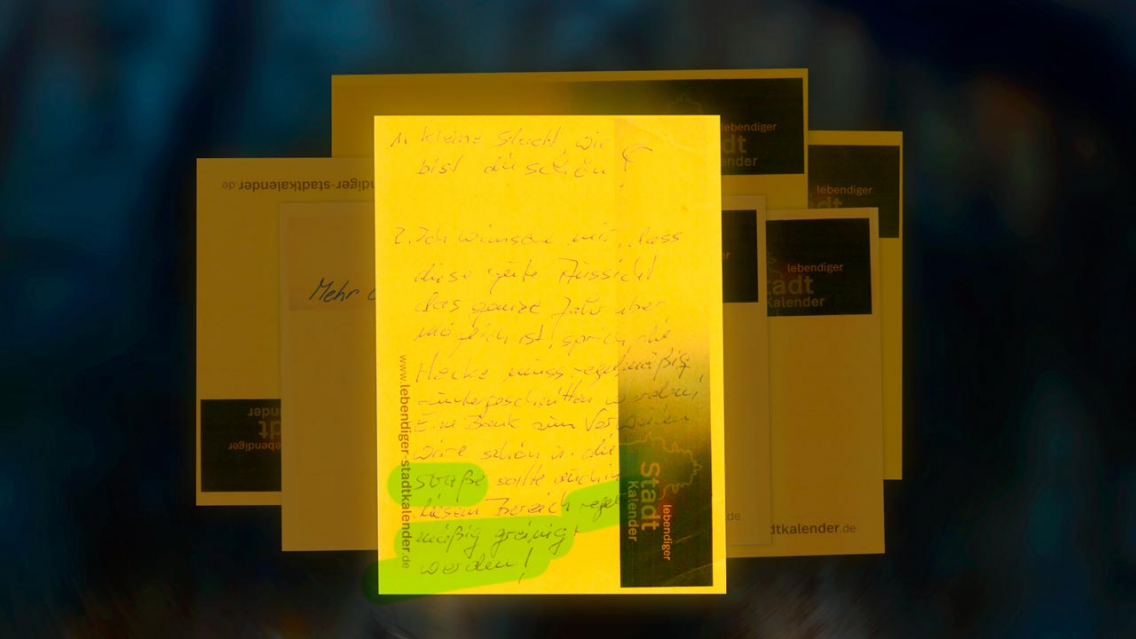 1. kleine Stadt, wie
bist du schön!
2. Ich wünsche mir, dass
diese gute Aussicht
das ganze Jahr über
möglich ist, sprich die
Hecke muss regelmäßig
runtergeschnitten werden!
Eine Bank zum Verweilen
wäre schön u. die
straße sollte auch in
diesem Bereich regel
mäßig greinigt
werden!
www.lebendiger-stadtkalender.de
lebendiger
Stadt
Kalender
Mehr
lebendiger
dt
ender
lebendiger
adt
lebendiger
tadt
Kalender
diger-stadtkalender.de
lebendiger
dt
lender
dtkalender.de
de